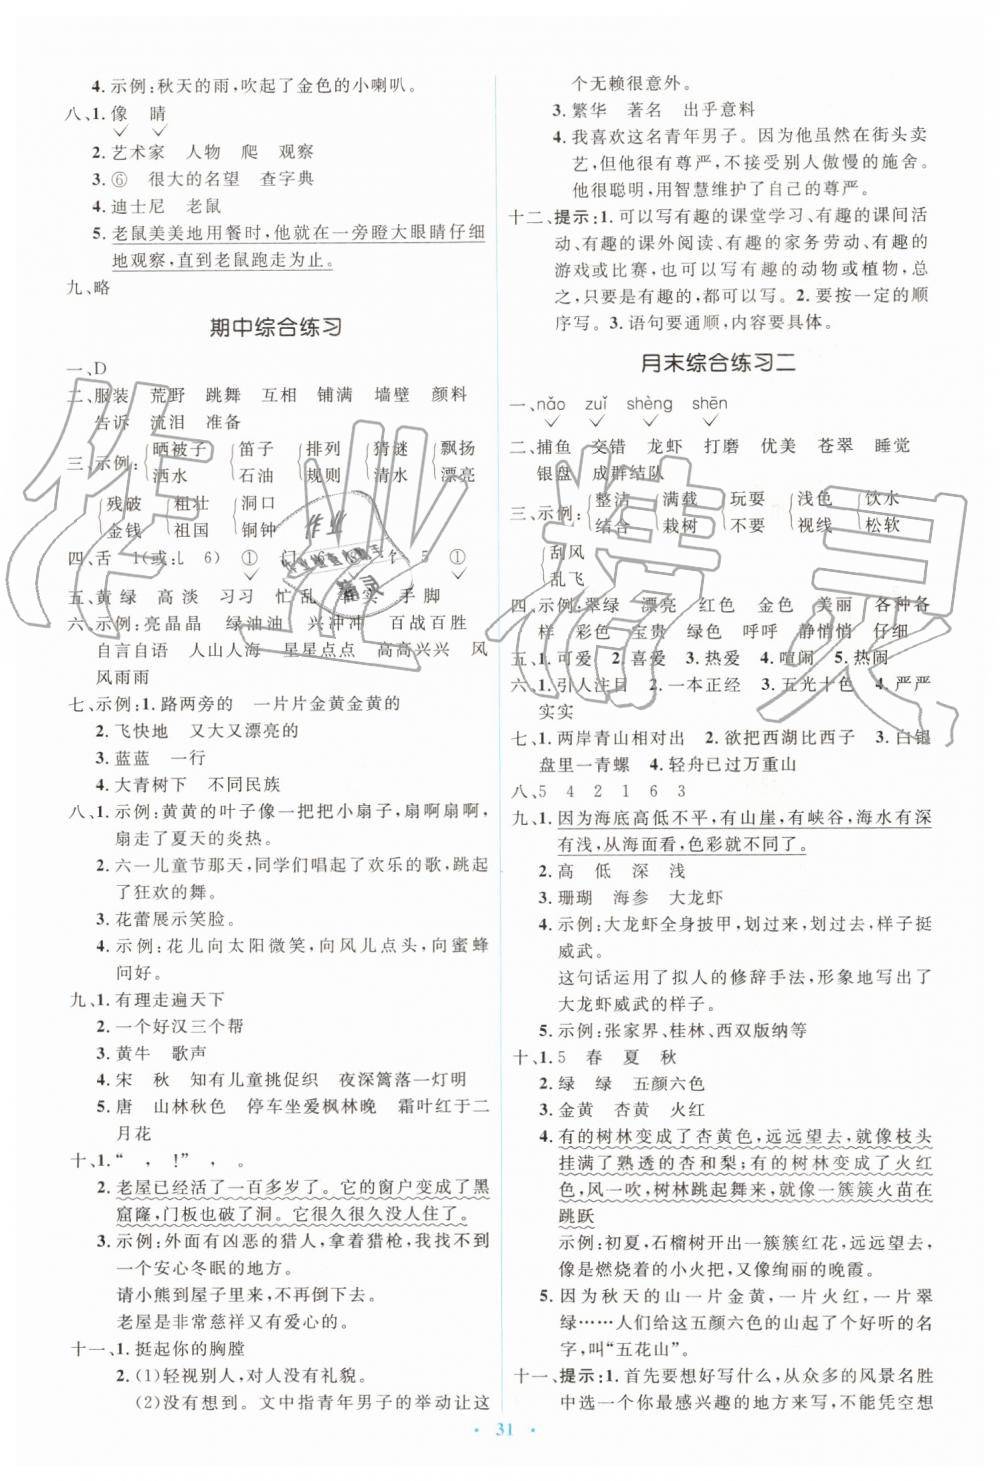 4. 示例:秋天的雨,吹起了金色的小喇叭。
八、1. 像 睛
2. 艺术家 人物 爬 观察
3. ⑥ 很大的名望 查字典
4. 迪士尼 老鼠
5. 老鼠美美地用餐时,他就在一旁瞪大眼睛仔细
地观察,直到老鼠跑走为止。
九、略
期中综合练习
一、D
二、服装 荒野 跳舞 互相 铺满 墙壁 颜料
告诉 流泪 准备
三、示例:{晒被子 {笛子 {排列 {猜谜 {飘扬
洒水 石油 规则 清水 漂亮
{残破 {粗壮 {洞口
金钱 祖国 铜钟
四、舌 1(或:L 6) ① 门 5 ①
五、黄 绿 高 淡 习习 忙 乱 实 手 脚
六、示例:亮晶晶 绿油油 兴冲冲 百战百胜
自言自语 人山人海 星星点点 高高兴兴 风
风雨雨
七、示例:1. 路两旁的 一片片金黄金黄的
2. 飞快地 又大又漂亮的
3. 蓝蓝 一行
4. 大青树下 不同民族
八、1. 示例:黄黄的叶子像一把把小扇子,扇啊扇啊,
扇走了夏天的炎热。
2. 六一儿童节那天,同学们唱起了欢乐的歌,跳起
了狂欢的舞。
3. 花蕾展示笑脸。
4. 示例:花儿向太阳微笑,向风儿点头,向蜜蜂
问好。
九、1. 有理走遍天下
2. 一个好汉三个帮
3. 黄牛 歌声
4. 宋 秋 知有儿童挑促织 夜深篱落一灯明
5. 唐 山林秋色 停车坐爱枫林晚 霜叶红于二
月花
十、1. “ , !” , 。
2. 老屋已经活了一百多岁了。它的窗户变成了黑
窟窿,门板也破了洞。它很久很久没人住了。
3. 示例:外面有凶恶的猎人,拿着猎枪,我找不到
一个安心冬眠的地方。
请小熊到屋子里来,不再倒下。
老屋是非常慈祥又有爱的。
十一、1. 挺起你的胸膛
2. (1)轻视别人,对人没有礼貌。
(2)没有想到。文中指青年男子的举动让这
个无赖很意外。
3. 繁华 著名 出乎意料
4. 我喜欢这名青年男子。因为他虽然在街头卖
艺,但他很有尊严,不接受别人傲慢的施舍。
他很聪明,用智慧维护了自己的尊严。
十二、提示:1. 可以写有趣的课堂学习、有趣的课间活
动、有趣的课外阅读、有趣的家务劳动、有趣的
游戏或比赛,也可以写有趣的动物或植物,总
之,只要是有趣的,都可以写。2. 要按一定的顺
序写。3. 语句要通顺,内容要具体。
月末综合练习二
一、nǎo zuǐ shèng shēn
二、捕鱼 交错 龙虾 打磨 优美 苍翠 睡觉
银盘 成群结队
三、示例:{整洁 {满载 {玩耍 {浅色 {饮水
结合 栽树 不要 视线 松软
{刮风
乱飞
四、示例:翠绿 漂亮 红色 金色 美丽 各种各
样 彩色 宝贵 绿色 呼呼 静悄悄 仔细
五、1. 可爱 2. 喜爱 3. 热爱 4. 喧闹 5. 热闹
六、1. 引人注目 2. 一本正经 3. 五光十色 4. 严严
实实
七、1. 两岸青山相对出 2. 欲把西湖比西子 3. 白银
盘里一青螺 4. 轻舟已过万重山
八、5 4 2 1 6 3
九、1. 因为海底高低不平,有山崖,有峡谷,海水有深
有浅,从海面看,色彩就不同了。
2. 高 低 深 浅
3. 珊瑚 海参 大龙虾
4. 示例:大龙虾全身披甲,划过来,划过去,样子挺
威武。
这句话运用了拟人的修辞手法,形象地写出了
大龙虾威武的样子。
5. 示例:张家界、桂林、西双版纳等
十、1. 5 春 夏 秋
2. 绿 绿 五颜六色
3. 金黄 杏黄 火红
4. 有的树林变成了杏黄色,远远望去,就像枝头
挂满了熟透的杏和梨;有的树林变成了火红
色,风一吹,树林跳起舞来,就像一簇簇火苗在
跳跃
示例:初夏,石榴树开出一簇簇红花,远远望去,
像是燃烧着的小火把,又像绚丽的晚霞。
5. 因为秋天的山一片金黄,一片火红,一片翠
绿……人们给这五颜六色的山起了个好听的名
字,叫“五花山”。
十一、提示:1. 首先要想好写什么,从众多的风景名胜
中选一个你最感兴趣的地方来写,不能凭空想
· 31 ·
作业精灵